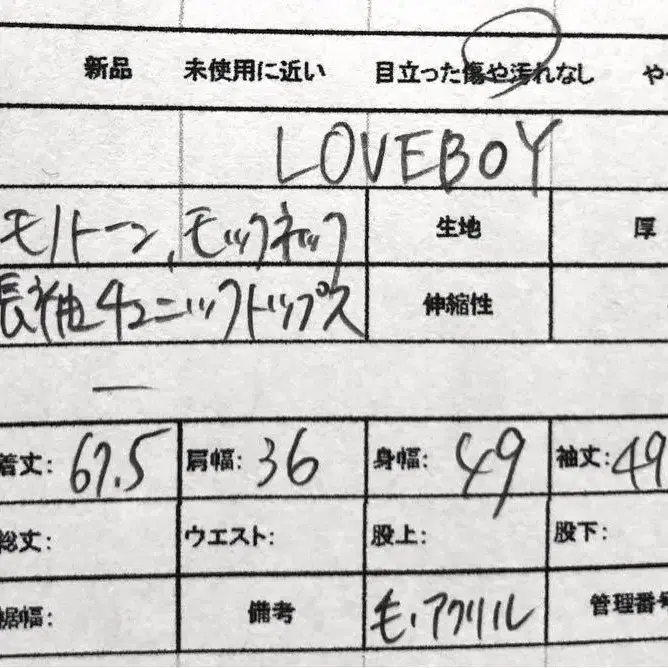 新品 未使用に近い 目立った傷や汚れなし や
LOVEBOY
モノトーン、モックネック 生地 厚
長袖チュニックトップス 伸縮性
—
着丈: 67.5 肩幅: 36 身幅: 49 袖丈: 49
総丈: ウエスト: 股上: 股下:
裾幅: 備考 毛、アクリル 管理番号